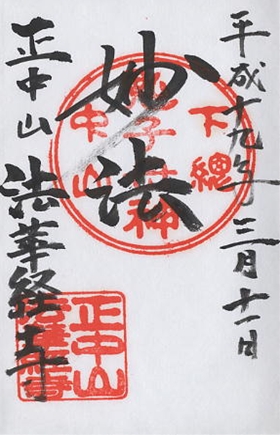 平成十九年三月十一日
妙法
正中山
法華経寺
下總
中山
鬼子母神
正中山
法華経寺